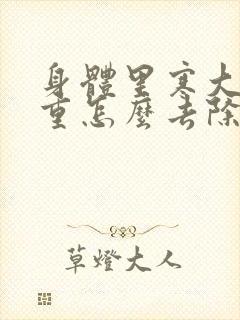 身體里寒大
重怎麼去除
草燈大人